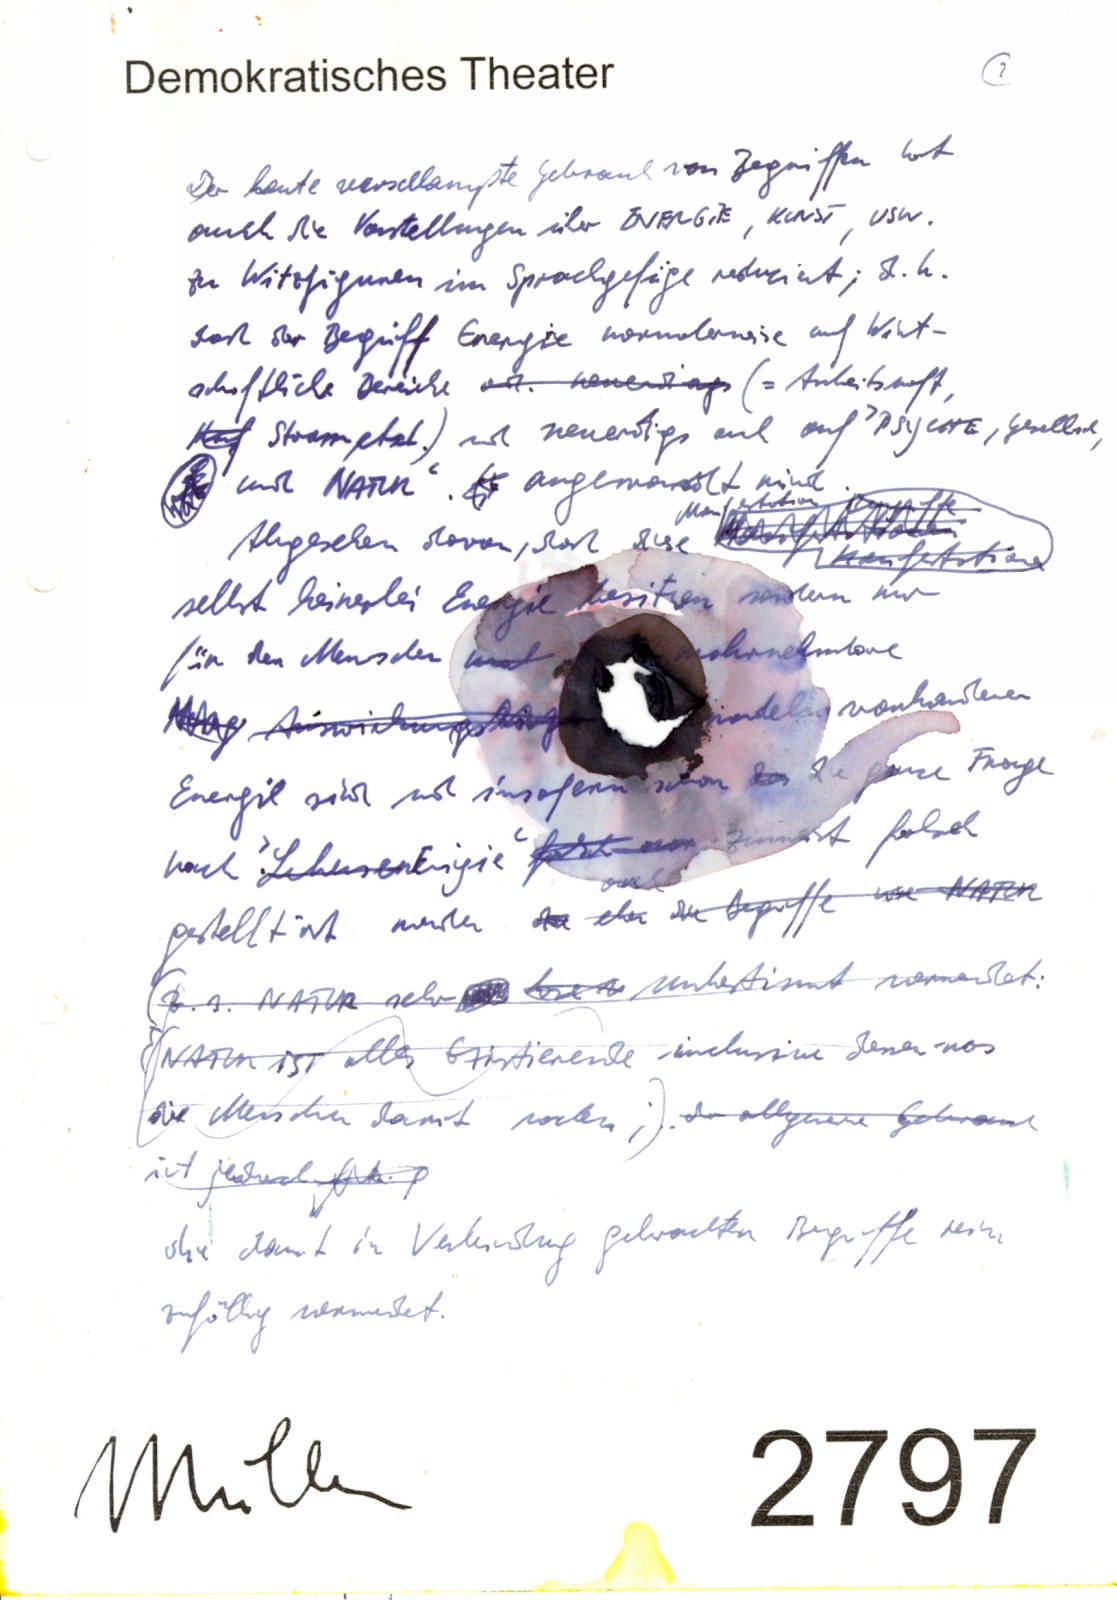 Demokratisches Theater
Der heute verschlampte Gebrauch von Begriffen hat
auch die Vorstellungen über ENERGIE, KUNST, USW.
zu Witzfiguren im Sprachgefüge reduziert; d.h.
daß der Begriff Energie normalerweise auf Wirt-
schaftliche Bereiche neuerdings (= Arbeitskraft,
Strom etc.) und neuerdigs auch auf "PSYCHE, Gesellsch,
und NATUR". angewandt wird.
Abgesehen davon, daß diese Manifestation Begriffe
Manifestationen
selbst keinerlei Energie besitzen sondern nur
für den Menschen wahrnehmbare
Auswirkungen vorhandener
Energie sind und insofern schon die ganze Frage
nach "Lebensenergie" zumeist falsch
auch
gestellt ist werden die Begriffe wie NATUR
NATUR sehr unbestimmt verwendet:
(NATUR IST alles Existierende inclusive dessen was
die Menschen damit machen;). der allgemeine Gebrauch
ist jedoch
die damit in Verbindung gebrachten Begriffe rein
zufällig verwendet.
Müller
2797